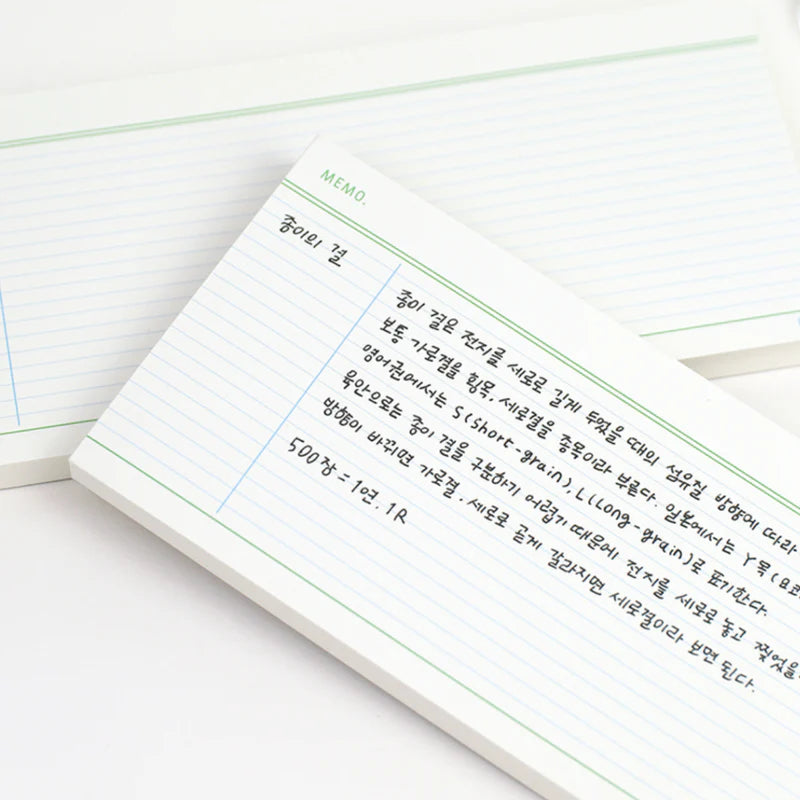 MEMO.
종이의 결
종이 결은 전지를 세로로 길게 두었을 때의 섬유질 방향에 따라
보통 가로결을 횡목, 세로결을 종목이라 부른다. 일본에서는 Y목(요코
영어권에서는 S(short-grain), L(Long-grain)로 표기한다.
육안으로는 종이 결을 구분하기 어렵기 때문에 전지를 세로로 놓고 찢었을
방향이 바뀌면 가로결. 세로로 곧게 갈라지면 세로결이라 보면 된다.
500장 = 1연. 1R